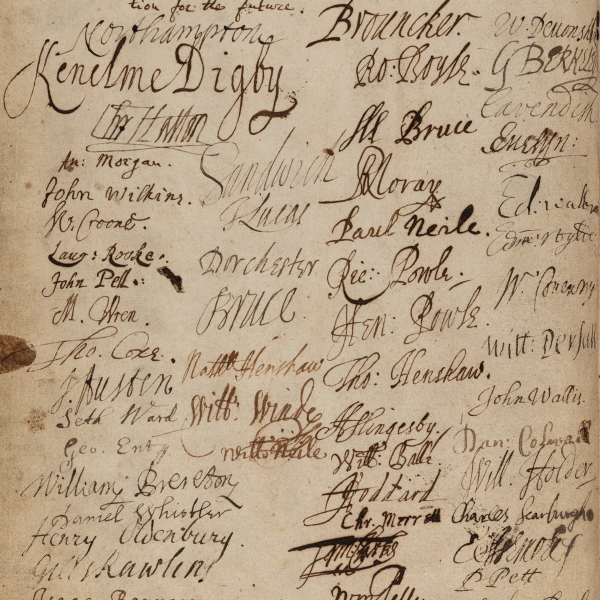 tion for the future.
Northampton
Kenelme Digby
Chr Hatton
An: Morgan.
John Wilkins.
W. Croone.
Laur: Rooke.
John Pell.
M. Wren.
Tho. Coxe.
J. Austen
Seth Ward
Geo. Ent
William Brereton
Daniel Whistler
Henry Oldenburg.
Giles Rawlins
Sandwich
J Lucas
Dorchester
Bruce
Nath Henshaw
Will: Winde
Will: Neile
Brouncker.
Ro: Boyle.
Bruce
RMoray
Paul Neile.
Ric: Powle.
Hen: Powle
Tho: Henshaw.
HSlingesby.
Will: Balle
JGoddard
Chr. Merrett
Wm Petty
W. Devonsh
G BERKELEY
Cavendish
Evelyn:
Ed: waller
W Coventry
John Wallis.
Dan: Colwall
Will. Holder
Charles Scarburgh
P Pett